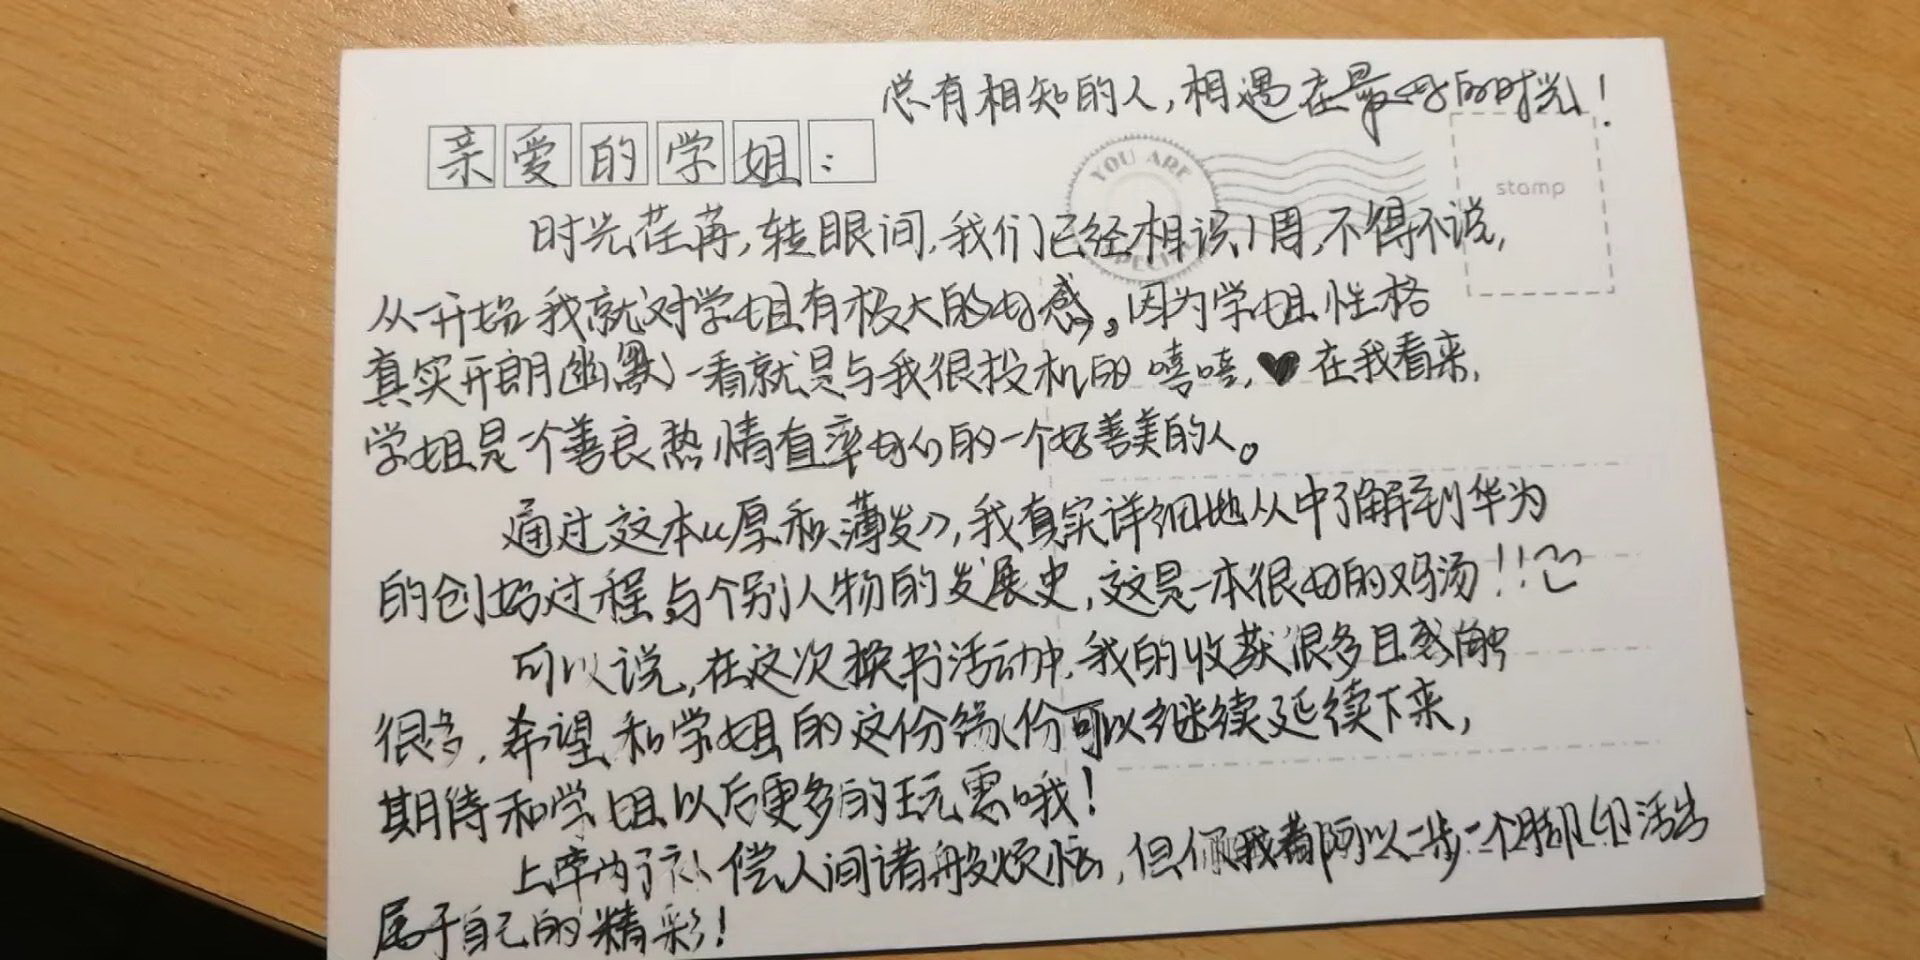 总有相知的人,相遇在最好的时光!
亲爱的学姐:
YOU ARE
SPECIAL
stamp
时光荏苒,转眼间,我们已经相识1周,不得不说,
从一开始我就对学姐有极大的好感。因为学姐性格
真实开朗幽默,一看就是与我很投机的嘻嘻,♥在我看来,
学姐是一个善良热情直率好心的一个好善美的人。
通过这本《厚积薄发》,我真实详细地从中了解到华为
的创始过程与个别人物的发展史,这是一本很好的鸡汤!!
可以说,在这次换书活动中,我的收获很多且感触
很多,希望和学姐的这份缘份可以继续延续下来,
期待和学姐以后更多的玩耍哦!
上苍为了补偿人间诸般烦恼,但你我都可以一步一个脚印活出
属于自己的精彩!